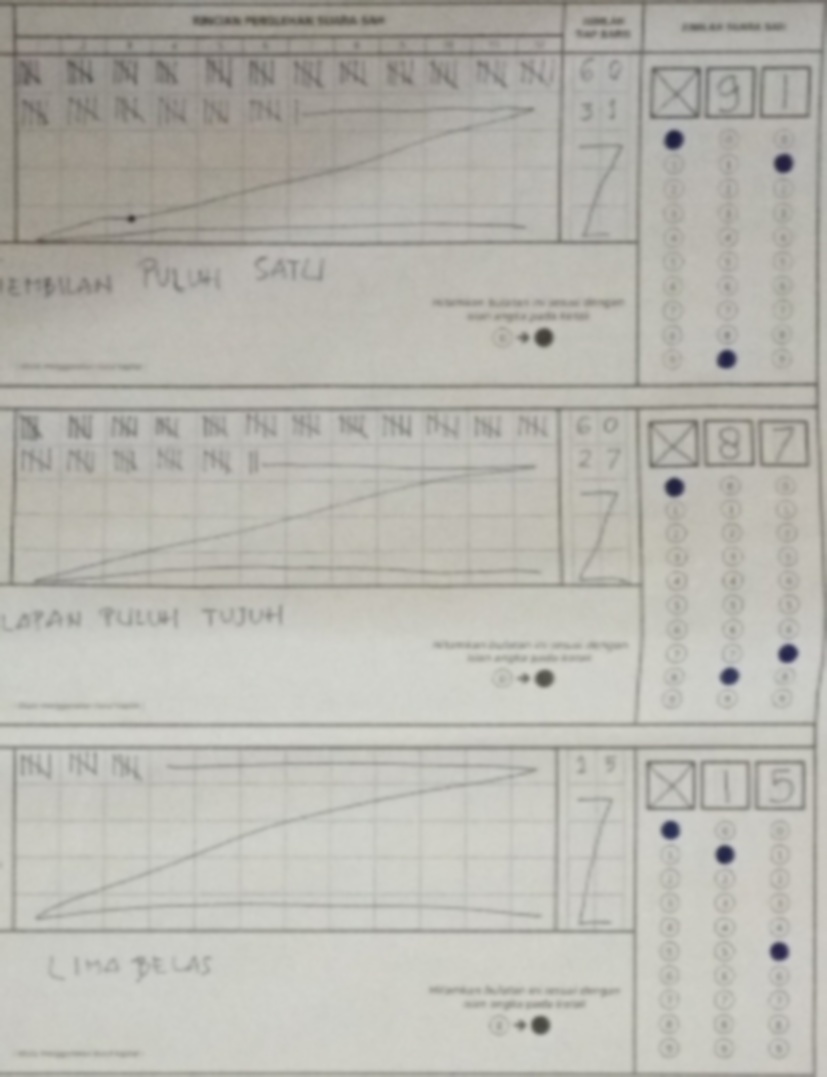 RINCIAN PEROLEHAN SUARA SAH
JUMLAH TIAP BARIS
JUMLAH SUARA SAH
2 3 4 5 6 7 8 9 10 11 12
60
31
X 9 1
EMBILAN PULUH SATU
Hitamkan bulatan ini sesuai dengan
isian angka pada kotak
60
27
X 8 7
LAPAN PULUH TUJUH
Hitamkan bulatan ini sesuai dengan
isian angka pada kotak
15
X 1 5
LIMA BELAS
Hitamkan bulatan ini sesuai dengan
isian angka pada kotak